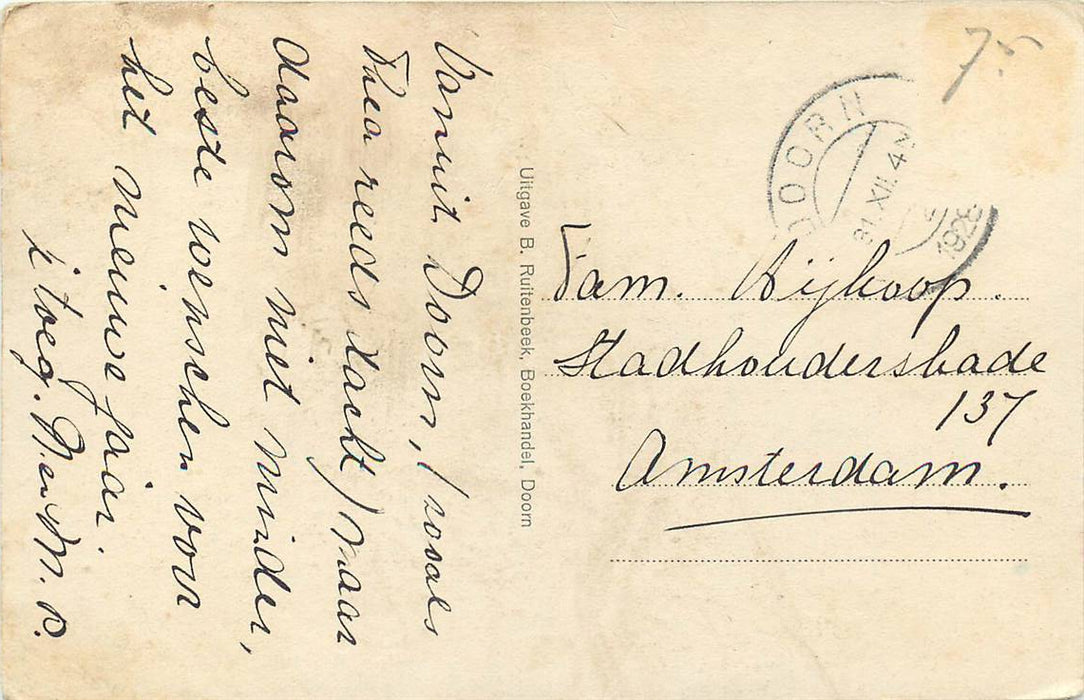 Vanuit Doorn, (zooals
Thea reeds dacht) maar
daarom niet minder,
beste wenschen voor
het nieuwe jaar.
Uitgave B. Ruitenbeek, Boekhandel, Doorn
7.-
DOORN
31.XII.4
1928
Fam. Rijkoop.
Stadhouderskade
137
Amsterdam.